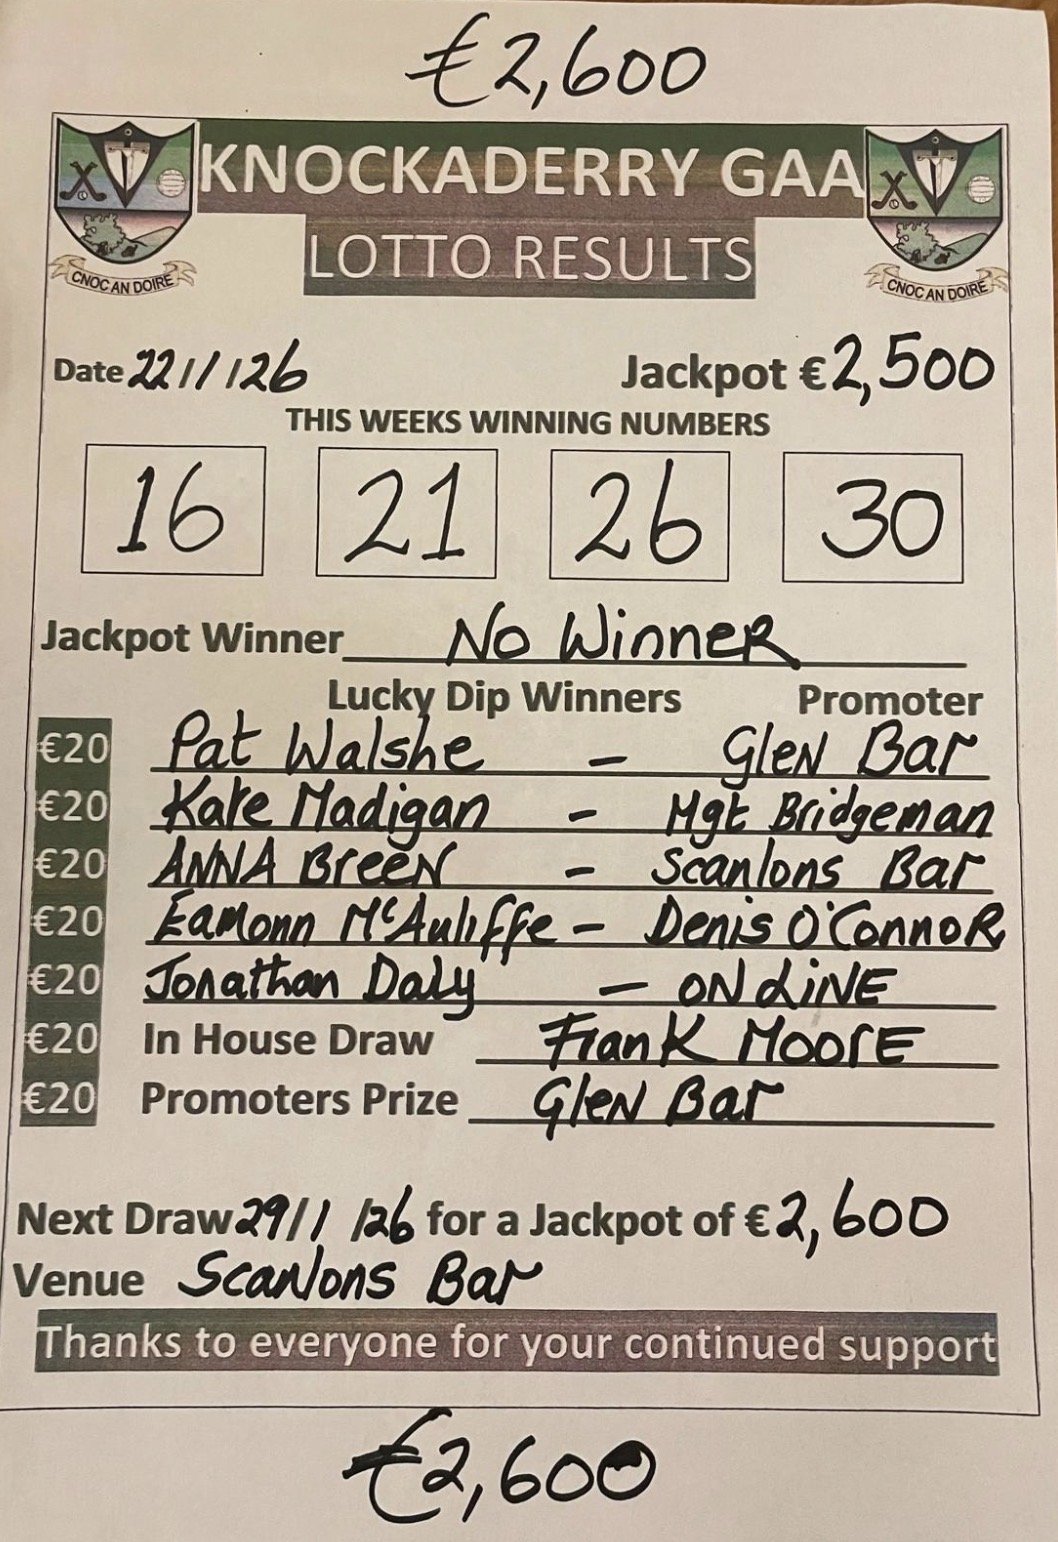 €2,600
KNOCKADERRY GAA
LOTTO RESULTS
CNOC AN DOIRE
CNOC AN DOIRE
Date 22/1/26 Jackpot €2,500
THIS WEEKS WINNING NUMBERS
16 21 26 30
Jackpot Winner No Winner
Lucky Dip Winners Promoter
€20 Pat Walshe - Glen Bar
€20 Kate Madigan - Mgt Bridgeman
€20 Anna Breen - Scanlons Bar
€20 Eamonn McAuliffe - Denis O'Connor
€20 Jonathan Daly - ONLINE
€20 In House Draw Frank Moore
€20 Promoters Prize Glen Bar
Next Draw 29/1/26 for a Jackpot of €2,600
Venue Scanlons Bar
Thanks to everyone for your continued support
€2,600